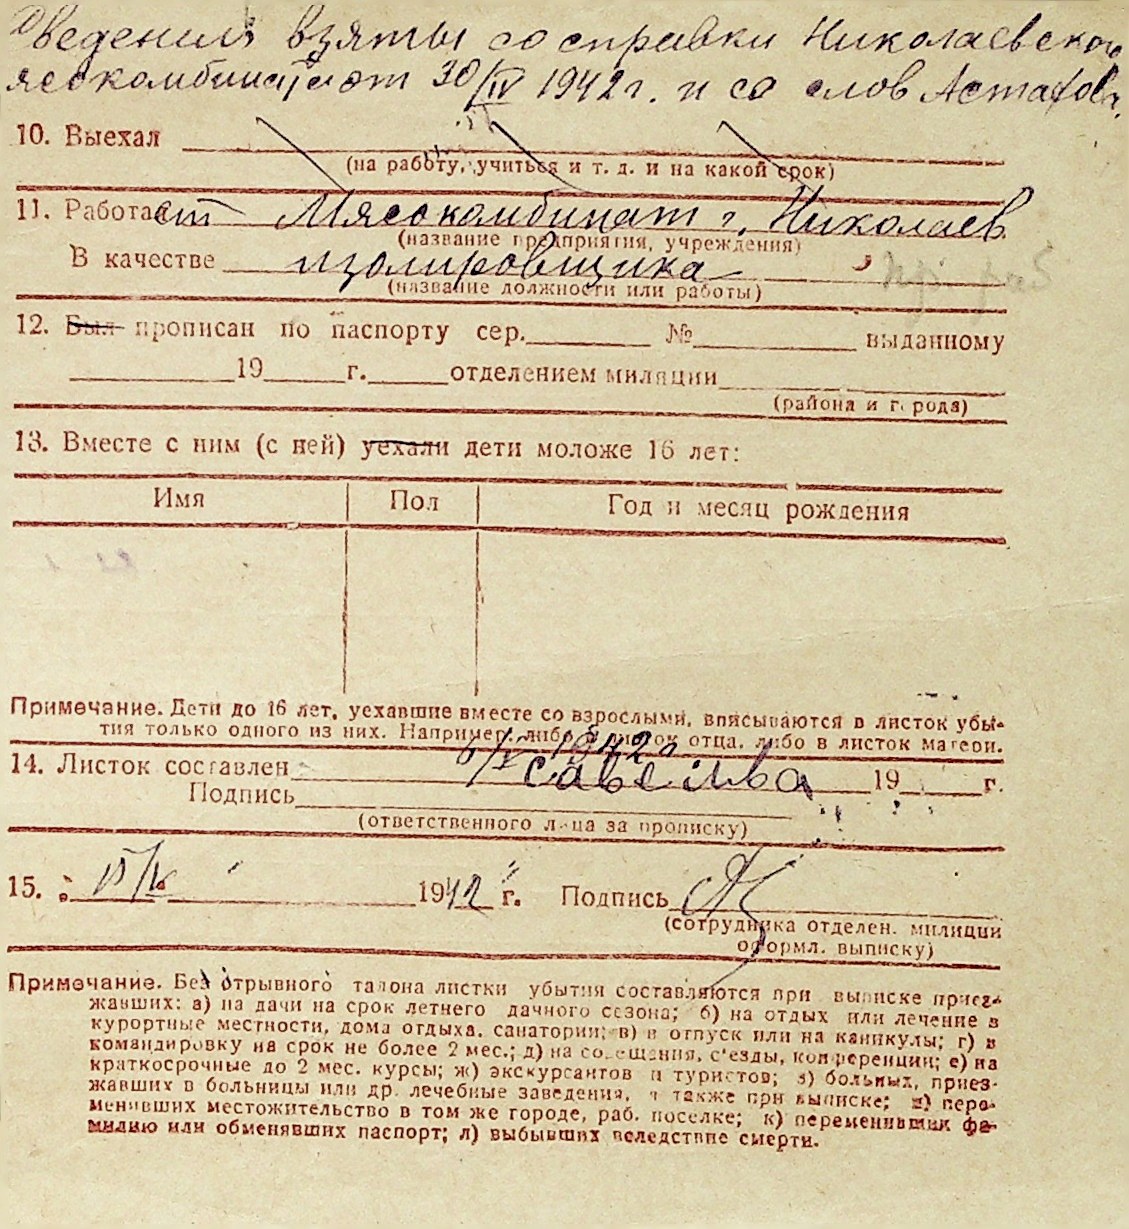 Сведения взяты со справки Николаевского
мясокомбината от 30/IV 1942 г. и со слов Астахова.
10. Выехал
(на работу, учиться и т. д. и на какой срок)
11. Работает Мясокомбинат г. Николаев
(название предприятия, учреждения)
В качестве изолировщика
(название должности или работы)
12. Был прописан по паспорту сер. № выданному
19 г. отделением милиции
(района и города)
13. Вместе с ним (с ней) уехали дети моложе 16 лет:
Имя Пол Год и месяц рождения
Примечание. Дети до 16 лет, уехавшие вместе со взрослыми, вписываются в листок убы-
тия только одного из них. Например, либо в листок отца, либо в листок матери.
1942 г.
14. Листок составлен Савельева 19 г.
Подпись
(ответственного лица за прописку)
15. 1942 г. Подпись
(сотрудника отделен. милиции
оформл. выписку)
Примечание. Без отрывного талона листки убытия составляются при выписке приез-
жавших: а) на дачи на срок летнего дачного сезона; б) на отдых или лечение в
курортные местности, дома отдыха, санатории; в) в отпуск или на каникулы; г) в
командировку на срок не более 2 мес.; д) на совещания, с'езды, конференции; е) на
краткосрочные до 2 мес. курсы; ж) экскурсантов и туристов; з) больных, приез-
жавших в больницы или др. лечебные заведения, а также при выписке; и) пере-
менивших местожительство в том же городе, раб. поселке; к) переменивших фа-
милию или обменявших паспорт; л) выбывших вследствие смерти.